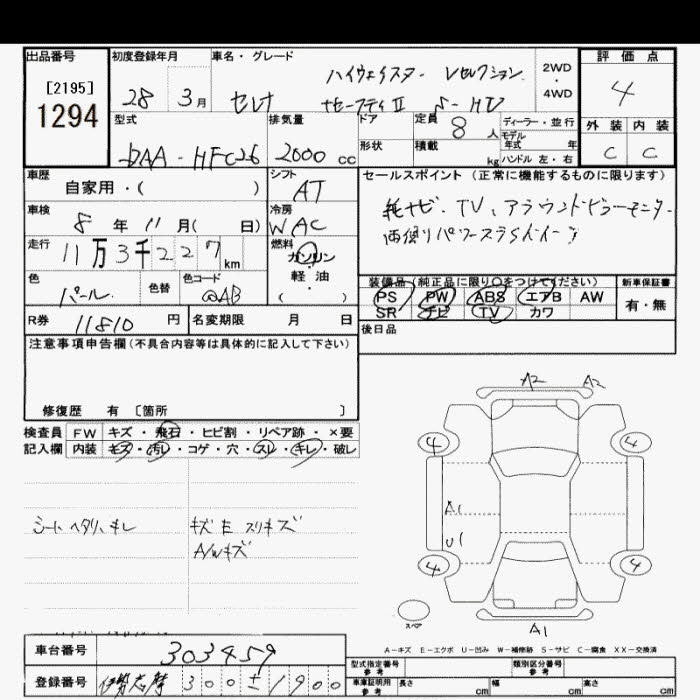 出品番号 初度登録年月 車名・グレード 評価点
[2195] ハイウェイスター Vセレクション 2WD・4WD
1294 28 3月 セレナ セーフティⅡ S-HV 4
型式 排気量 ドア 定員 8人 ディーラー・並行 外装 内装
DAA-HFC26 2000cc 形状 積載 kg モデル年式 年 C C
ハンドル 左・右
車歴 シフト セールスポイント (正常に機能するものに限ります)
自家用・( ) AT
車検 冷房 純ナビ、TV、アラウンドビューモニター
8年 11月( 日) WAC 両側パワースライドドア
走行 燃料
11万3千227km ガソリン・軽油 ( )
色 色替 色コード 装備品(純正品に限り○をつけてください) 新車保証書
パール @AB PS PW ABS エアB AW 有・無
SR ナビ TV カワ
R券 11810円 名変期限 月 日 後日品
注意事項申告欄(不具合内容等は具体的に記入して下さい)
修復歴 有 〔箇所 〕
検査員 FW キズ・飛石・ヒビ割・リペア跡・×要
記入欄 内装 キズ・汚レ・コゲ・穴・スレ・キレ・破レ
シートヘタリ、キレ キズE スリキズ
A/Wキズ
A2 A2
4 4
A1
U1
4 4
スペア A1
A-キズ E-エクボ U-凹み W-補修跡 S-サビ C-腐食 XX-交換済
車台番号 303459 型式指定番号 参考 類別区分番号 参考
登録番号 伊勢志摩 300 ±1900 車庫証明用 参考 長さ cm 幅 cm 高さ cm